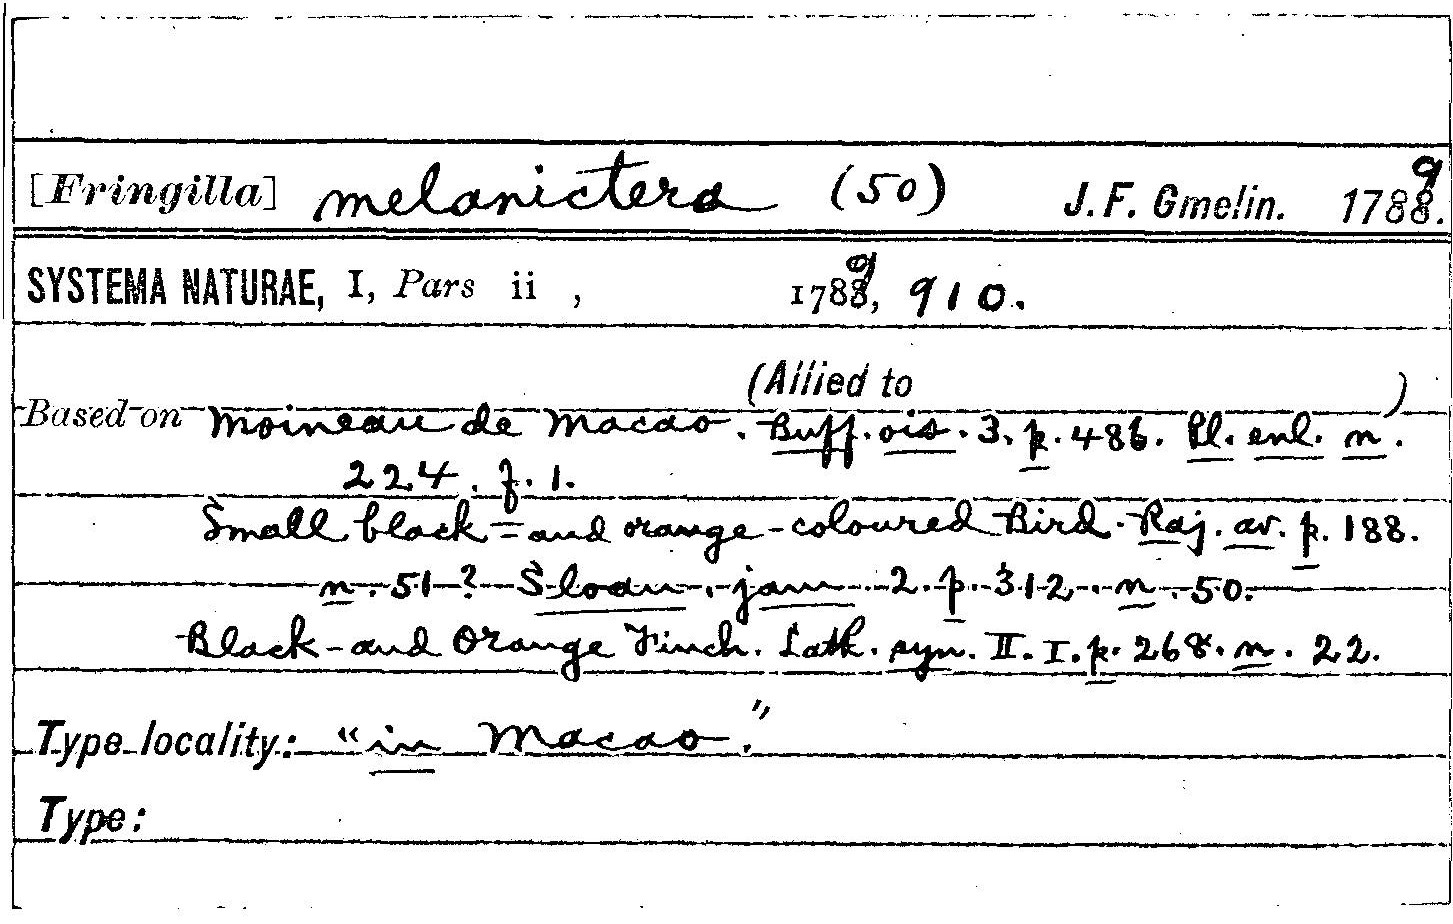 [Fringilla] melanictera (50) J. F. Gmelin. 1789.
SYSTEMA NATURAE, I, Pars ii , 1789, 910.
(Allied to )
Based on Moineau de Macao. Buff. ois. 3. p. 486. Pl. enl. n.
224. f. 1.
Small black = and orange-coloured Bird. Raj. av. p. 188.
n. 51? Sloan. jam. 2. p. 312. n. 50.
Black-and Orange Finch. Lath. syn. II. I. p. 268. n. 22.
Type locality: "in Macao."
Type: